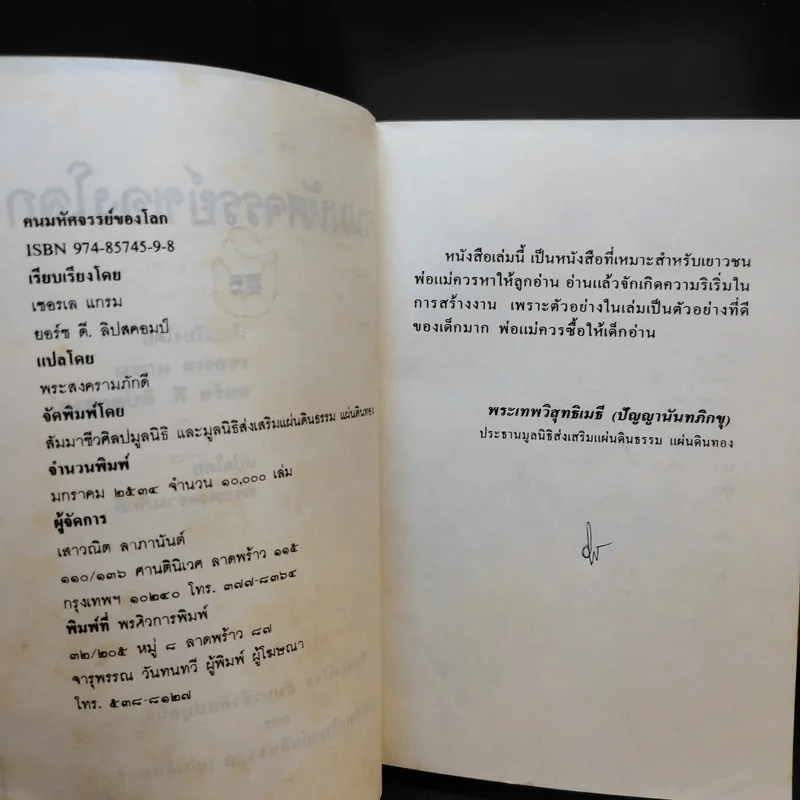 คนมหัศจรรย์ของโลก
ISBN 974-85745-9-8
เรียบเรียงโดย
เชอรเล แกรม
ยอร์ช ดี. ลิปสคอมป์
แปลโดย
พระสงครามภักดี
จัดพิมพ์โดย
สัมมาชีวศิลปมูลนิธิ และมูลนิธิส่งเสริมแผ่นดินธรรม แผ่นดินทอง
จำนวนพิมพ์
มกราคม ๒๕๓๔ จำนวน ๑๐,๐๐๐ เล่ม
ผู้จัดการ
เสาวณิต ลาภานันต์
๑๑๐/๑๓๖ ศานตินิเวศ ลาดพร้าว ๑๑๕
กรุงเทพฯ ๑๐๒๔๐ โทร. ๓๗๗-๘๓๖๔
พิมพ์ที่ พรศิวการพิมพ์
๓๒/๒๐๕ หมู่ ๘ ลาดพร้าว ๘๗
จารุพรรณ วันทนทวี ผู้พิมพ์ ผู้โฆษณา
โทร. ๕๓๘-๘๑๒๗
หนังสือเล่มนี้ เป็นหนังสือที่เหมาะสำหรับเยาวชน
พ่อแม่ควรหาให้ลูกอ่าน อ่านแล้วจักเกิดความริเริ่มใน
การสร้างงาน เพราะตัวอย่างในเล่มเป็นตัวอย่างที่ดี
ของเด็กมาก พ่อแม่ควรซื้อให้เด็กอ่าน
พระเทพวิสุทธิเมธี (ปัญญานันทภิกขุ)
ประธานมูลนิธิส่งเสริมแผ่นดินธรรม แผ่นดินทอง